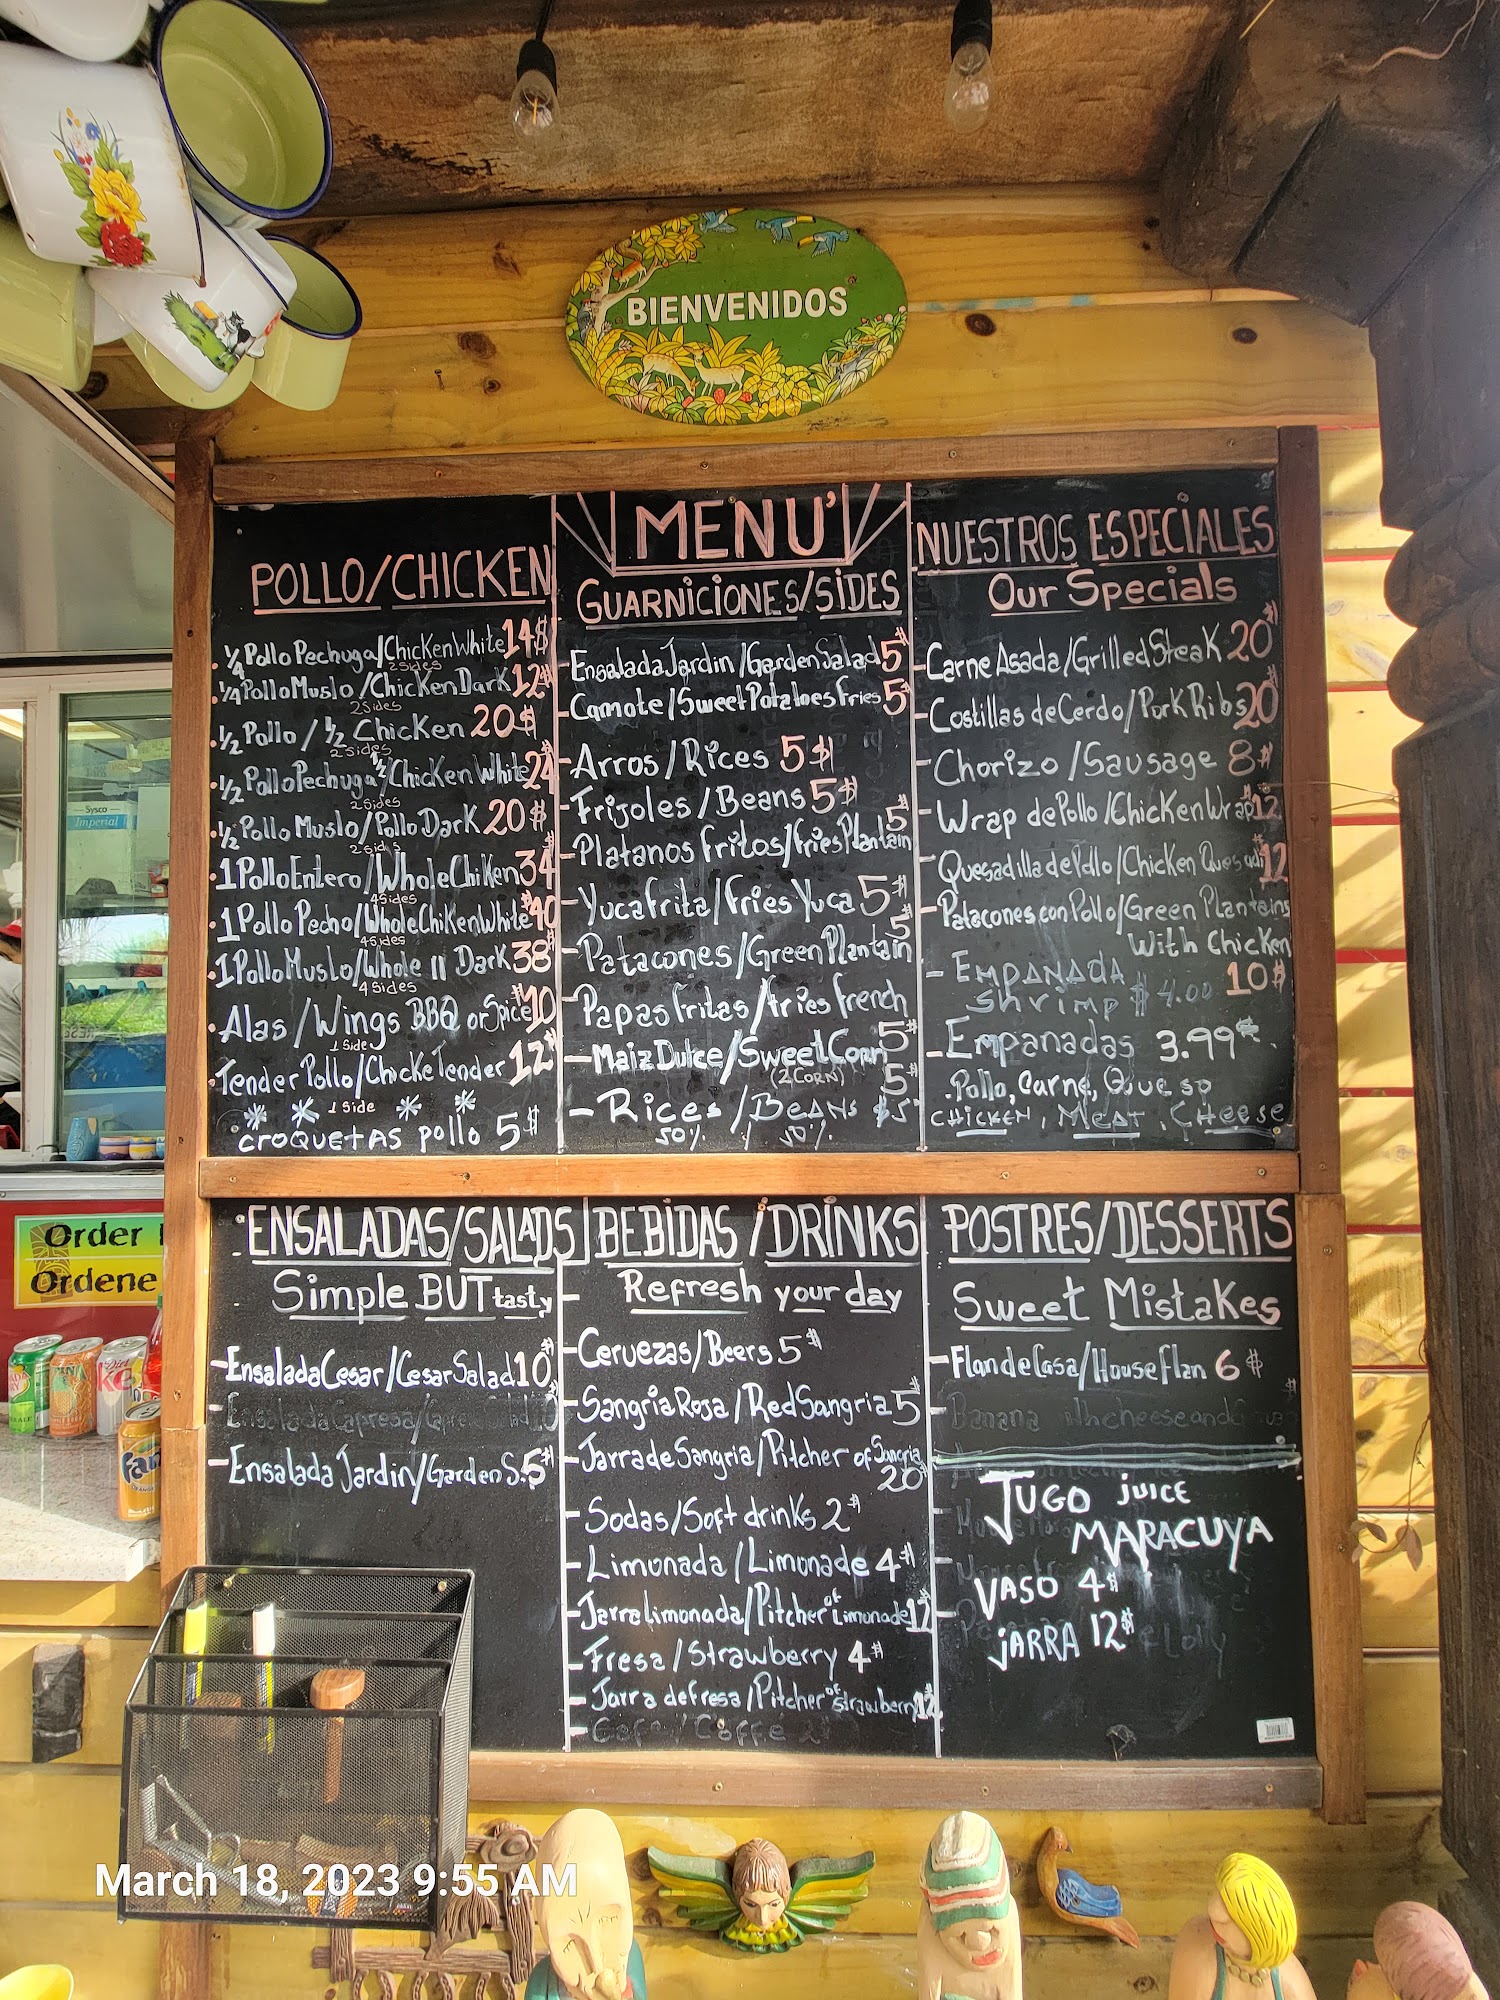 BIENVENIDOS
MENU'
POLLO/CHICKEN
. ¼ Pollo Pechuga/Chicken White 14$
2 Sides
. ¼ Pollo Muslo/Chicken Dark 12$
2 Sides
. ½ Pollo / ½ Chicken 20$
2 Sides
. ½ Pollo Pechuga/½ Chicken White 24$
2 Sides
. ½ Pollo Muslo/Pollo Dark 20$
2 Sides
. 1 Pollo Entero/Whole Chiken 34$
4 Sides
. 1 Pollo Pecho/Whole Chiken White $40
4 Sides
. 1 Pollo Muslo/Whole 11 Dark 38$
4 Sides
. Alas/Wings BBQ or Spice $10
1 Side
. Tender Pollo/Chicke Tender 12$
1 Side
CROQUETAS pollo 5$
GUARNICIONES/SIDES
- Ensalada Jardin/Garden Salad 5$
- Camote/Sweet Potatoes Fries 5$
- Arros/Rices 5$
- Frijoles/Beans 5$
- Platanos fritos/fries Plantain 5$
- Yuca frita/fries Yuca 5$
- Patacones/Green Plantain 5$
- Papas fritas/fries french 5$
- Maiz Dulce/Sweet Corn 5$
(2 CORN)
- Rices/BEANS $5
50% / 50%
NUESTROS ESPECIALES
Our Specials
- Carne Asada/Grilled Steak 20$
- Costillas de Cerdo/Pork Ribs 20$
- Chorizo/Sausage 8$
- Wrap de Pollo/Chicken Wrap $12
- Quesadilla de Pollo/Chicken Quesadi 12$
- Patacones con Pollo/Green Plantains
With Chicken 10$
- EMPANADA
Shrimp $4.00
- Empanadas 3.99
. Pollo, Carne, Queso
CHICKEN, MEAT, CHEESE
ENSALADAS/SALADS
Simple BUT tasty
- Ensalada Cesar/Cesar Salad 10$
Ensalada Capresa
- Ensalada Jardin/Garden S. 5$
BEBIDAS/DRINKS
Refresh your day
- Cervezas/Beers 5$
- Sangria Roja/Red Sangria 5$
- Jarra de Sangria/Pitcher of Sangria 20$
- Sodas/Soft drinks 2$
- Limonada/Limonade 4$
- Jarra Limonada/Pitcher of Limonade 12$
- Fresa/Strawberry 4$
- Jarra de fresa/Pitcher of strawberry 12$
- Cafe/Coffe 2
POSTRES/DESSERTS
Sweet Mistakes
- Flan de Casa/House Flan 6$
Banana
JUGO juice
MARACUYA
VASO 4$
jARRA 12$
Sysco
Imperial
Order
Ordene
March 18, 2023 9:55 AM